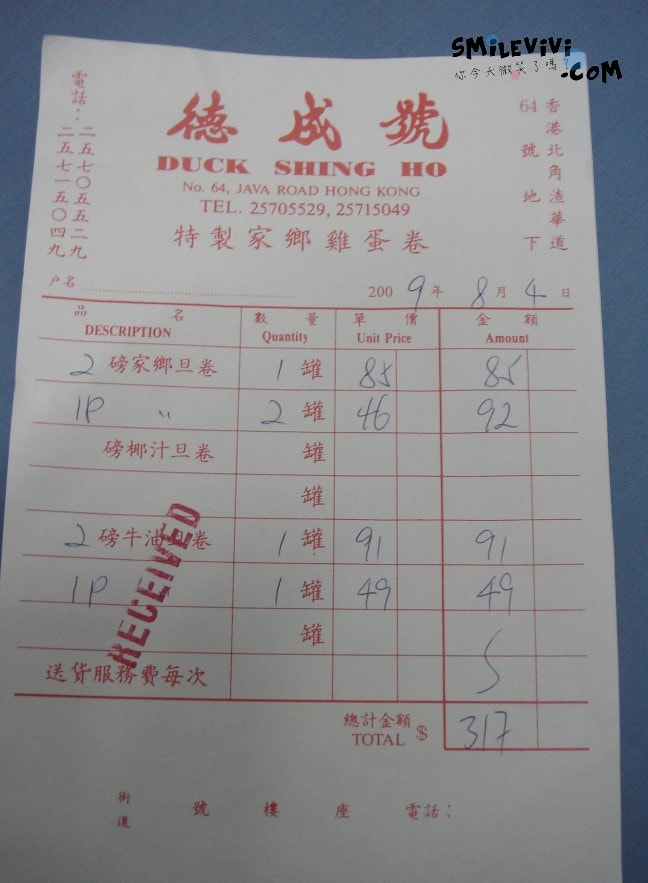 SMiLEViVi.COM
你今天微笑了嗎?
電話：二五七〇五五二九
二五七一五〇四九
德成號
DUCK SHING HO
No. 64, JAVA ROAD HONG KONG
TEL. 25705529, 25715049
特製家鄉雞蛋卷
香港北角渣華道
64號地下
户名 2009年8月4日
品名 數量 單價 金額
DESCRIPTION Quantity Unit Price Amount
2磅家鄉旦卷 1罐 85 85
1P 〃 2罐 46 92
磅椰汁旦卷 罐
罐
2磅牛油旦卷 1罐 91 91
1P 1罐 49 49
罐
RECEIVED
送貨服務費每次 5
總計金額
TOTAL $ 317
街道 號 樓 座 電話：